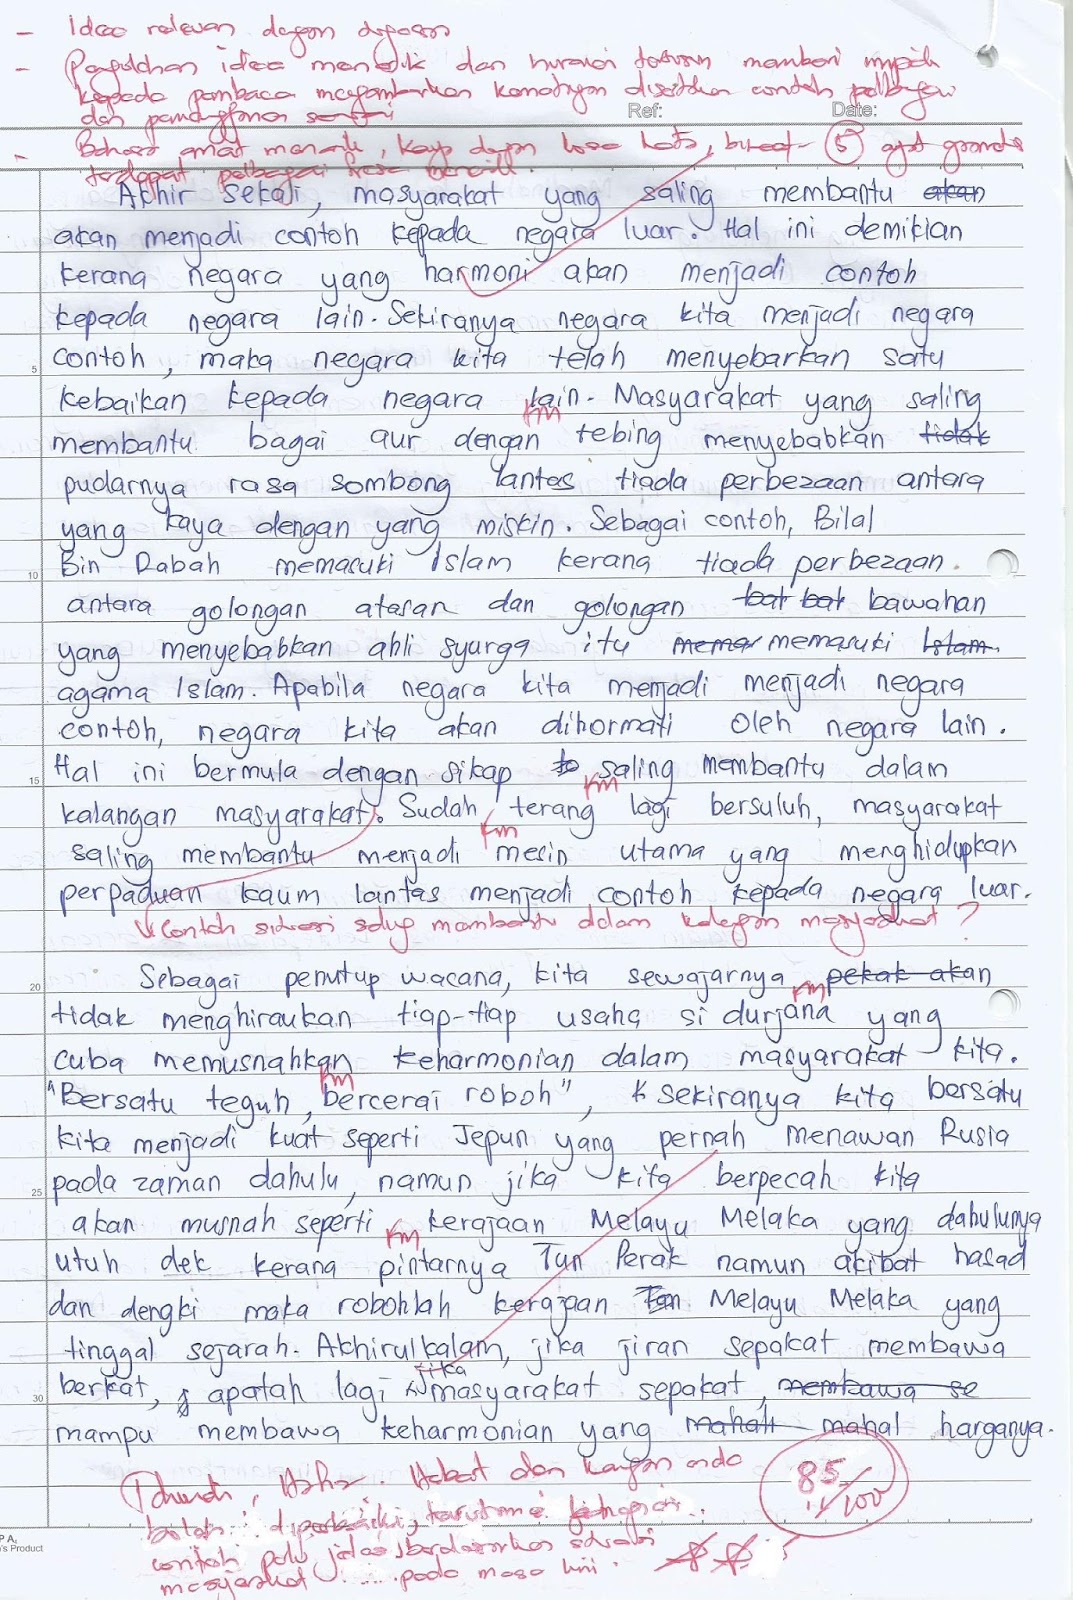 - Idea relevan dengan
- Pengolahan idea menarik dan huraian memberi
kepada pembaca menggambarkan kematangan contoh pelbagai
dan
Ref: Date:
- Bahasa amat menarik, kaya dengan kosa kata, 5 ayat
terdapat pelbagai
Akhir sekali, masyarakat yang saling membantu akan
akan menjadi contoh kepada negara luar. Hal ini demikian
kerana negara yang harmoni akan menjadi contoh
kepada negara lain. Sekiranya negara kita menjadi negara
5 contoh, maka negara kita telah menyebarkan satu
kebaikan kepada negara lain. Masyarakat yang saling
km
membantu bagai aur dengan tebing menyebabkan tidak
pudarnya rasa sombong lantas tiada perbezaan antara
yang kaya dengan yang miskin. Sebagai contoh, Bilal
10 Bin Rabah memasuki Islam kerana tiada perbezaan.
antara golongan atasan dan golongan bat bat bawahan
yang menyebabkan ahli syurga itu memasuki Islam
agama Islam. Apabila negara kita menjadi menjadi negara
contoh, negara kita akan dihormati oleh negara lain.
15 Hal ini bermula dengan sikap saling membantu dalam
km
kalangan masyarakat. Sudah terang lagi bersuluh, masyarakat
km
saling membantu menjadi mesin utama yang menghidupkan
perpaduan kaum lantas menjadi contoh kepada negara luar.
Contoh situasi saling membantu dalam kalangan masyarakat?
20 Sebagai penutup wacana, kita sewajarnya pekak akan
km
tidak menghiraukan tiap-tiap usaha si durjana yang
cuba memusnahkan keharmonian dalam masyarakat kita.
km
"Bersatu teguh, bercerai roboh", sekiranya kita bersatu
kita menjadi kuat seperti Jepun yang pernah menawan Rusia
25 pada zaman dahulu, namun jika kita berpecah kita
akan musnah seperti kerajaan Melayu Melaka yang dahulunya
km
utuh dek kerana pintarnya Tun Perak namun akibat hasad
dan dengki maka robohlah kerajaan Melayu Melaka yang
tinggal sejarah. Akhirulkalam, jika jiran sepakat membawa
jika
30 berkat, apatah lagi masyarakat sepakat, membawa se
mampu membawa keharmonian yang mahal mahal harganya.
85/100
Hebat dan karangan anda
boleh diperbaiki terutama bahagian
contoh perlu jelas berdasarkan situasi
masyarakat ..... pada masa kini.
's Product